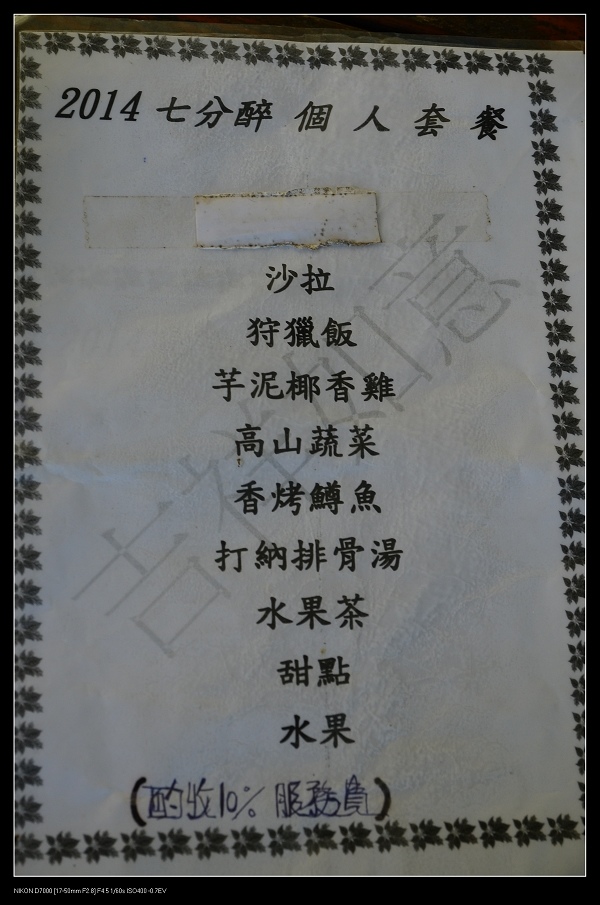 2014 七分醉 個人套餐
沙拉
狩獵飯
芋泥椰香雞
高山蔬菜
香烤鱒魚
打納排骨湯
水果茶
甜點
水果
(酌收10% 服務費)
吉祥如意
NIKON D7000 [17-50mm F2.8] F4.5 1/60s ISO400 -0.7EV